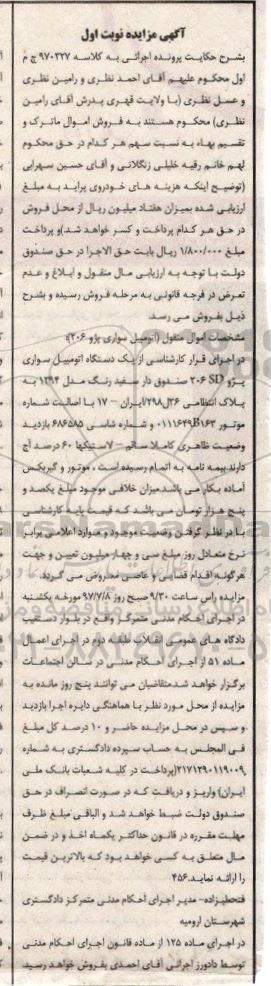 آگهی مزایده نوبت اول
بشرح حکایت پرونده اجرائی به کلاسه ۹۷۰۳۳۷ ج م
اول محکوم علیهم آقای احمد نظری و رامین نظری
و عسل نظری (با ولایت قهری پدرش آقای رامین
نظری) محکوم هستند به فروش اموال ماترک و
تقسیم بهاء به نسبت سهم هر کدام در حق محکوم
لهم خانم رقیه خلیلی زنگلانی و آقای حسین سهرابی
(توضیح اینکه هزینه های خودروی پراید به مبلغ
ارزیابی شده بمیزان هفتاد میلیون ریال از محل فروش
در حق هر کدام پرداخت و کسر خواهد شد.)و پرداخت
مبلغ ۱/۸۰۰/۰۰۰ ریال بابت حق الاجرا در حق صندوق
دولت با توجه به ارزیابی مال منقول و ابلاغ و عدم
تعرض در فرجه قانونی به مرحله فروش رسیده و بشرح
ذیل بفروش می رسد.
مشخصات اموال منقول (اتومبیل سواری پژو ۲۰۶):
در اجرای قرار کارشناسی از یک دستگاه اتومبیل سواری
پژو ۲۰۶ SD صندوق دار سفید رنگ مدل ۱۳۹۴ به
پلاک انتظامی ۳۶ل۲۹۸/ایران – ۱۷ با اصالت شماره
موتور و شماره شاسی ۶۸۶۵۸۵ بازدید
وضعیت ظاهری کاملا سالم – لاستیکها ۶۰ درصد آج
دارند.بیمه نامه به اتمام رسیده است ، موتور و گیربکس
آماده بکار می باشد.میزان خلافی موجود مبلغ یکصد و
پنج هزار تومان می باشد که قیمت پایه کارشناسی
با در نظر گرفتن وضعیت موجود و موارد اعلامی برابر
نرخ متعادل روز مبلغ سی و چهار میلیون تعیین و جهت
هرگونه اقدام قضایی و خاصی معروض می گردد.
مزایده راس ساعت ۹/۳۰ صبح روز ۹۷/۷/۸ مورخه یکشنبه
در اجرای احکام مدنی متمرکز واقع در بلوار دستغیب
دادگاه های عمومی انقلاب طبقه دوم در اجرای اعمال
ماده ۵۱ از اجرای احکام مدنی در سالن اجتماعات
برگزار خواهد شد.متقاضیان می توانند پنج روز مانده به
مزایده از محل مورد نظر با هماهنگی دایره اجرا بازدید
و سپس در محل مزایده حاضر و ۱۰ درصد کل مبلغ
فی المجلس به حساب سپرده دادگستری به شماره
۲۱۷۱۲۹۰۱۱۹۰۰۹(پرداخت در کلیه شعبات بانک ملی
ایران) واریز و دریافت که در صورت انصراف در حق
صندوق دولت ضبط خواهد شد و الباقی مبلغ ظرف
مهلت مقرره در قانون حداکثر یکماه اخذ و در ضمن
مال متعلق به کسی خواهد بود که بالاترین قیمت
را ارائه نماید.۴۵۶
فتحعلیزاده- مدیر اجرای احکام مدنی متمرکز دادگستری
شهرستان ارومیه
در اجرای ماده ۱۲۵ از ماده قانون اجرای احکام مدنی
توسط دادورز اجرائی آقای احمدی بفروش خواهد رسید